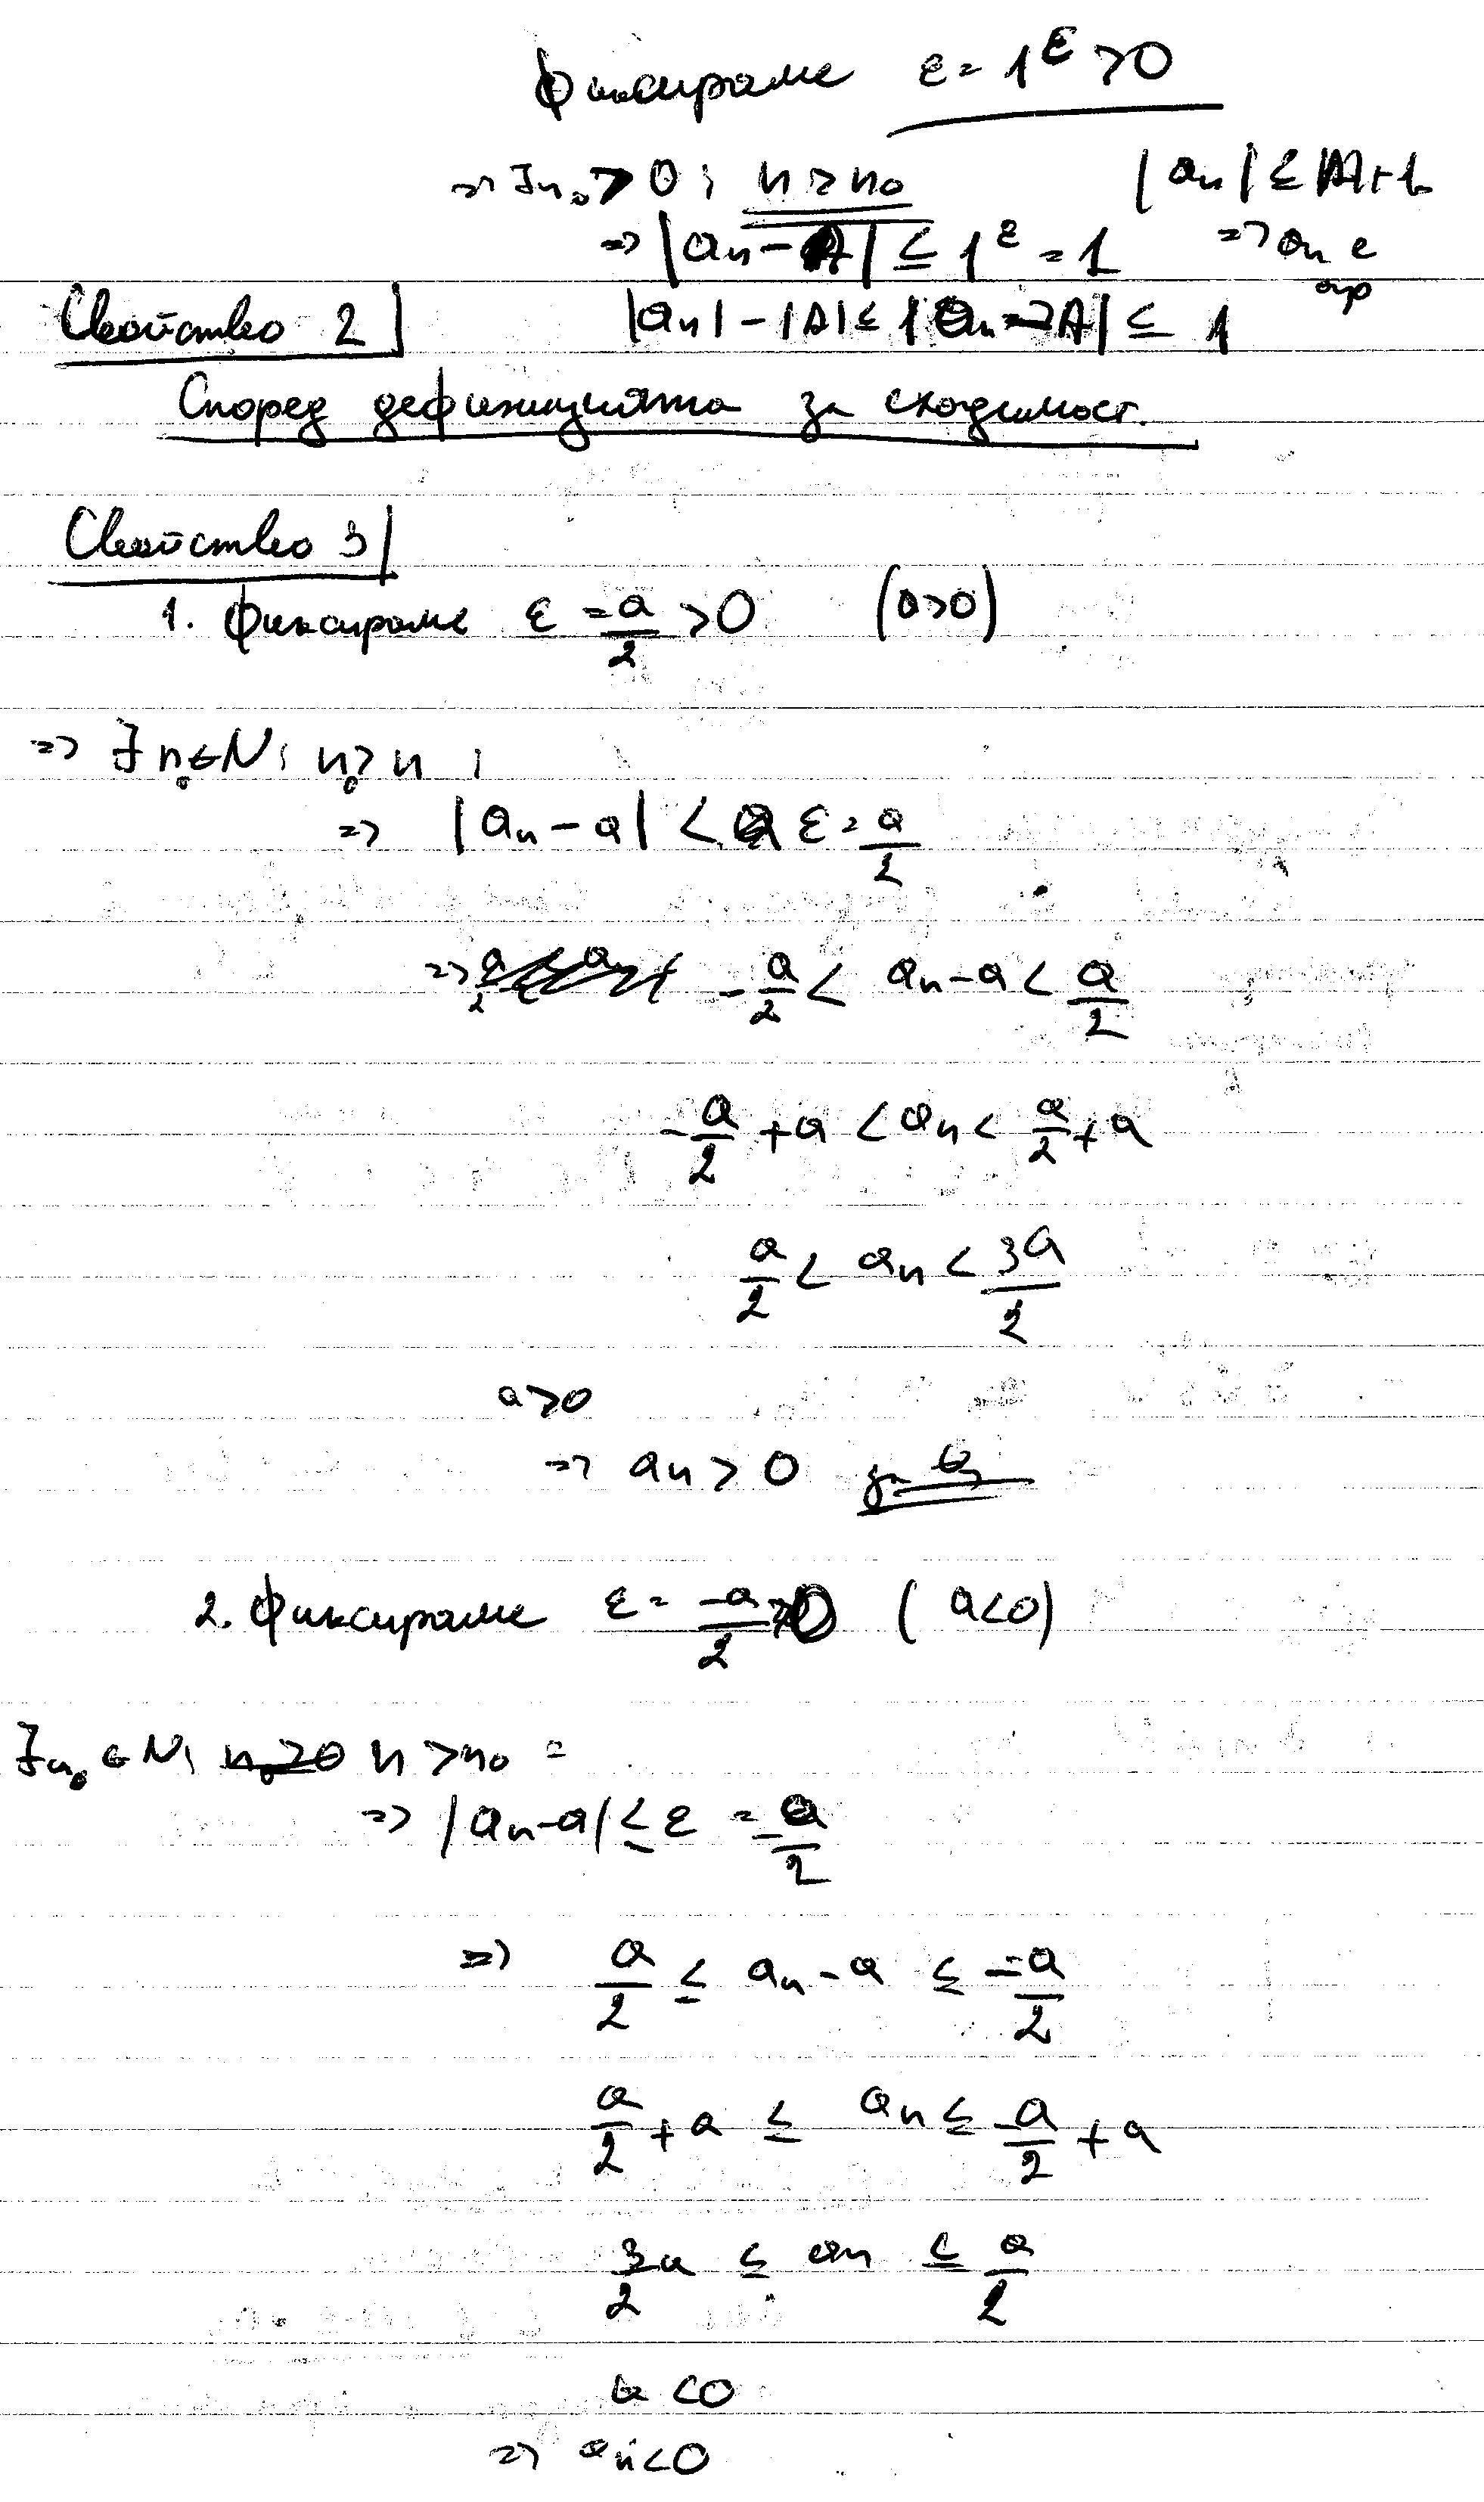 Фиксираме ε = 1^ε > 0
=> ∃n₀ > 0; n > n₀ |aₙ| ≤ |A|+1
=> |aₙ - A| ≤ 1^ε = 1 => aₙ е огр
|aₙ| - |A| ≤ |aₙ - A| ≤ 1
Свойство 2
Според дефиницията за сходимост.
Свойство 3
1. Фиксираме ε = a/2 > 0 (a>0)
=> ∃ n₀ ∈ N; n₀ > n ;
=> |aₙ - a| < ε = a/2
=> -a/2 < aₙ - a < a/2
-a/2 + a < aₙ < a/2 + a
a/2 < aₙ < 3a/2
a>0
=> aₙ > 0 за
2. Фиксираме ε = -a/2 > 0 (a<0)
∃n₀ ∈ N; n > n₀ =
=> |aₙ - a| ≤ ε = -a/2
=> a/2 ≤ aₙ - a ≤ -a/2
a/2 + a ≤ aₙ ≤ -a/2 + a
3a/2 ≤ aₙ ≤ a/2
a < 0
=> aₙ < 0